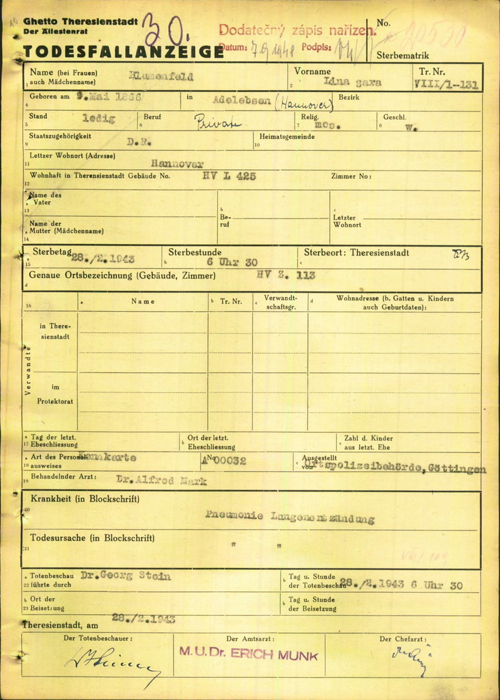 Ghetto Theresienstadt
Der Ältestenrat
30.
Dodatečný zápis nařízen.
Datum: Podpis:
No.
TODESFALLANZEIGE
Sterbematrik
Name (bei Frauen) Blumenfeld Vorname Idna Sara Tr. Nr.
auch Mädchenname) VIII/1-131
Geboren am 9.Mai 1866 in Adelebsen (Hannover) Bezirk
Stand ledig Beruf Private Relig. mos. Geschl. w.
Staatszugehörigkeit D.R. Heimatsgemeinde
Letzter Wohnort (Adresse) Hannover
Wohnhaft in Theresienstadt Gebäude No. HV L 425 Zimmer No:
Name des
Vater Be-
ruf Letzter
Wohnort
Name der
Mutter (Mädchenname)
Sterbetag 28./2.1943 Sterbestunde 6 Uhr 30 Sterbeort: Theresienstadt
Genaue Ortsbezeichnung (Gebäude, Zimmer) HV Z. 113
Verwandte
Name Tr. Nr. Verwandt-
schaftsgr. Wohnadresse (b. Gatten u. Kindern
auch Geburtdaten):
in There-
sienstadt
im
Protektorat
Tag der letzt.
Eheschliessung Ort der letzt.
Eheschliessung Zahl d. Kinder
aus letzt. Ehe
Art des Personal-
ausweises Kennkarte A 00032 Ausgestellt
von Ortspolizeibehörde, Göttingen
Behandelnder Arzt Dr. Alfred Mark
Krankheit (in Blockschrift)
Pneumonie Lungenentzündung
Todesursache (in Blockschrift) " "
Totenbeschau Dr. Georg Stein
führte durch Tag u. Stunde
der Totenbeschau 28./2.1943 6 Uhr 30
Ort der
Beisetzung Tag u. Stunde
der Beisetzung
Theresienstadt, am 28./2.1943
Der Totenbeschauer: Der Amtsarzt: Der Chefarzt:
M. U. Dr. ERICH MUNK